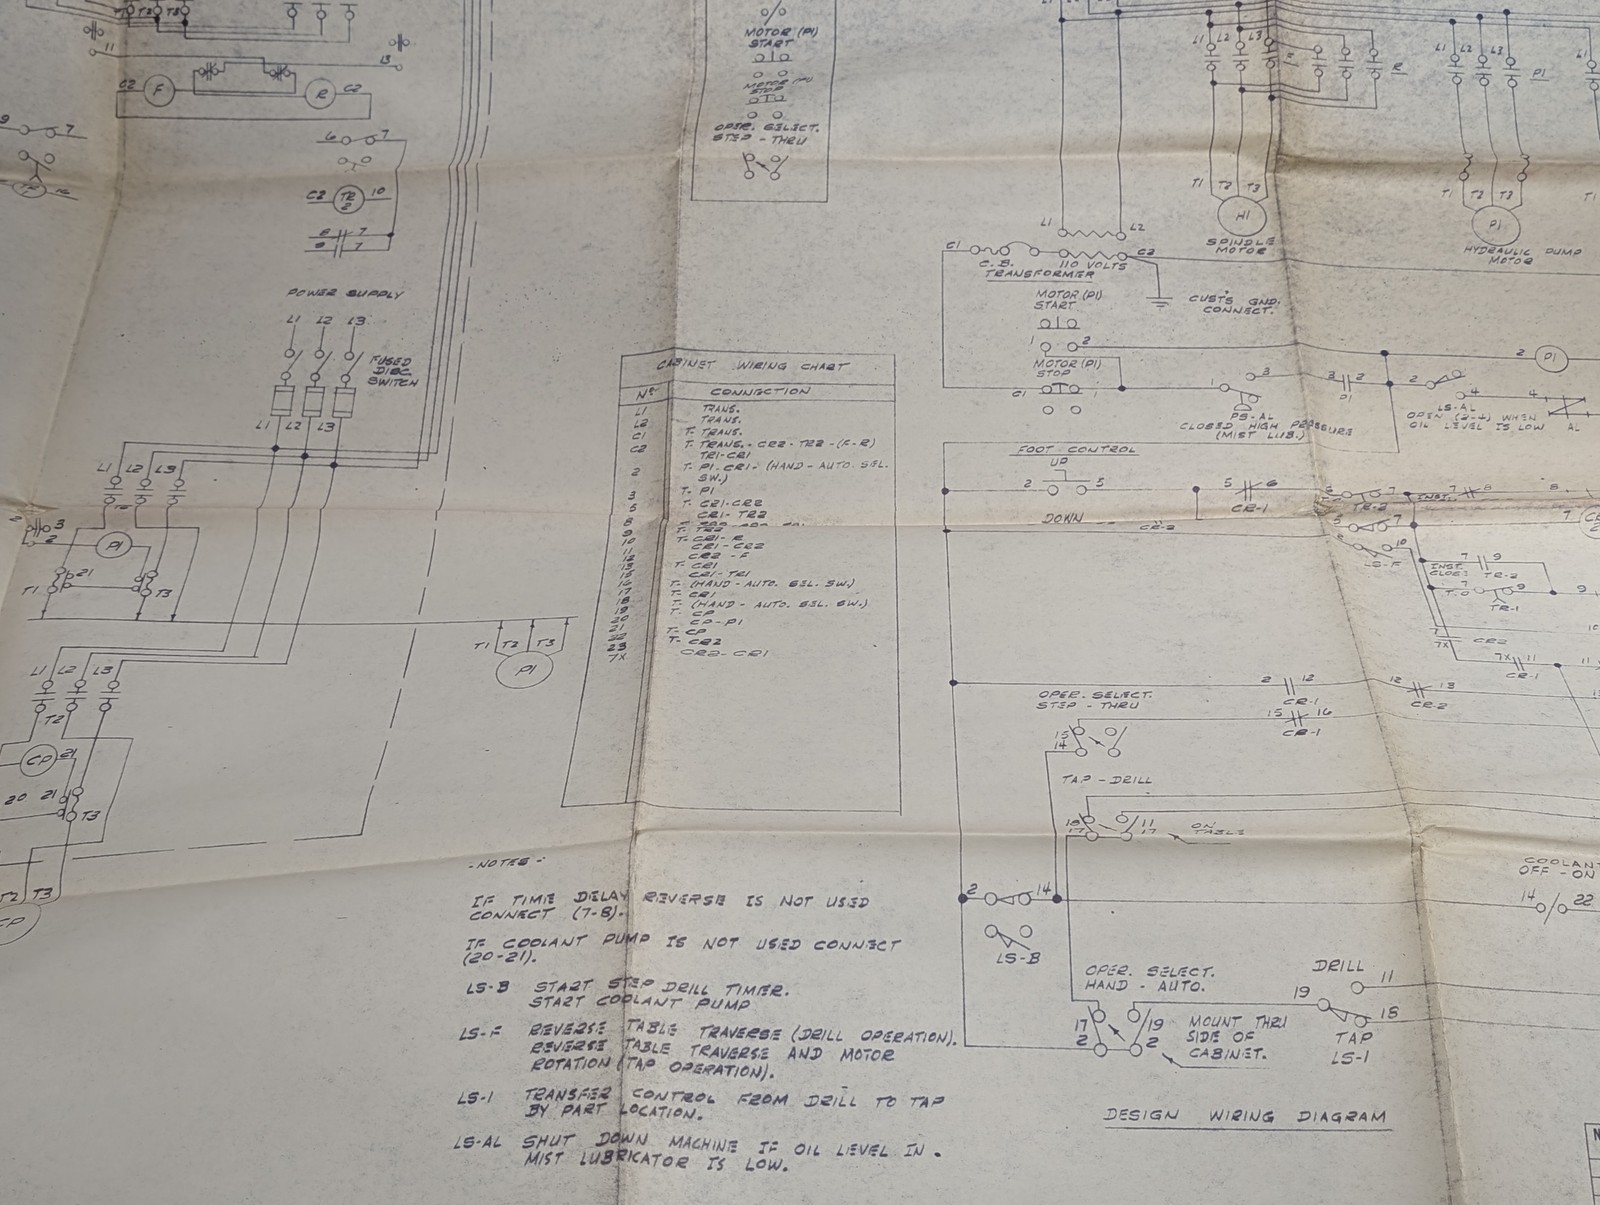 T1 T2 T3
11
13
C2 F R C2
9 7
6 7
C2 TR 2 10
8 7
9 7
POWER SUPPLY
L1 L2 L3
FUSED
DISC
SWITCH
L1 L2 L3
L1 L2 L3
2 3
2
P1
21
T1 T3
L1 L2 L3
T2
CP 21
20 21
T3
T2 T3
CP
T1 T2 T3
P1
MOTOR (P1)
START
MOTOR (P1)
STOP
OPER. SELECT.
STEP - THRU
CABINET WIRING CHART
Nº CONNECTION
L1 TRANS.
L2 TRANS.
C1 T- TRANS.
C2 T- TRANS. - CR2 - TR2 - (F-R)
TR1-CR1
2 T- P1-CR1- (HAND - AUTO. SEL.
SW.)
3 T- P1
5 T- CR1-CR2
6 CR1- TR2
8
9 T- TR2
10 T- CR1- R
11 CR1 - CR2
12 CR2 - F
13 T- CR1
15 CR1-TR1
16 T- (HAND - AUTO. SEL. SW.)
17 T- CR1
18 T- (HAND - AUTO. SEL. SW.)
19 T- CP
20 CP-P1
21 T- CP
22 T- CR2
23
7X CR2-CR1
L1 L2 L3 F R
T1 T2 T3
M1
SPINDLE
MOTOR
L1 L2 L3 P1
T1 T2 T3
P1
HYDRAULIC PUMP
MOTOR
T1
L1 L2
C1 C2
C.B. 110 VOLTS
TRANSFORMER
CUST'S GND.
CONNECT.
MOTOR (P1)
START
1 2
MOTOR (P1)
STOP
C1 1
1 3
PS-AL
CLOSED HIGH PRESSURE
(MIST LUB.)
3 2
P1
2 P1
2 4
LS-AL
OPEN (2-4) WHEN
OIL LEVEL IS LOW
4
AL
FOOT CONTROL
UP
2 5
DOWN
CR-2
5 6
CR-1
6 7
TR-2
INST.
7 8
8
7
5 7
10
LS-F
INST.
CLOSE
7 9
TR-2
7 9
T.O.
TR-1
9
10
7
7X
CR2
7X 11
CR-1
11
2 12
CR-1
12 13
CR-2
OPER. SELECT.
STEP - THRU
15
14
15 16
CR-1
TAP - DRILL
18 11
17 17
ON
TABLE
2 14
LS-B
COOLANT
OFF - ON
14 22
OPER. SELECT.
HAND - AUTO.
17 19
2 2
MOUNT THRU
SIDE OF
CABINET.
DRILL
11
19
18
TAP
LS-1
DESIGN WIRING DIAGRAM
- NOTES -
IF TIME DELAY REVERSE IS NOT USED
CONNECT (7-8).
IF COOLANT PUMP IS NOT USED CONNECT
(20-21).
LS-B START STEP DRILL TIMER.
START COOLANT PUMP
LS-F REVERSE TABLE TRAVERSE (DRILL OPERATION).
REVERSE TABLE TRAVERSE AND MOTOR
ROTATION (TAP OPERATION).
LS-1 TRANSFER CONTROL FROM DRILL TO TAP
BY PART LOCATION.
LS-AL SHUT DOWN MACHINE IF OIL LEVEL IN
MIST LUBRICATOR IS LOW.